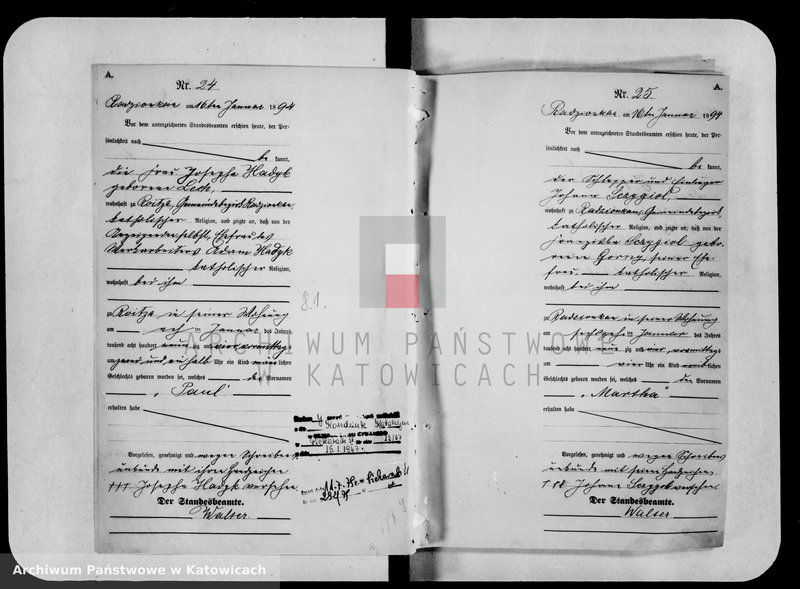 A.
Nr. 24
Radzionkau am 16ten Januar 1894
Vor dem unterzeichneten Standesbeamten erschien heute, der Per-
sönlichkeit nach
be kannt,
die Frau Josepha Hadyk
geborene Leck,
wohnhaft zu Roitza, Gemeindebezirk Radzionkau
katholischer Religion, und zeigte an, daß von der
Anzeigenden selbst, Ehefrau des
Werkarbeiters Adam Hadyk
katholischer Religion,
wohnhaft bei ihm
zu Roitza in seiner Wohnung
am acht Januar des Jahres
tausend acht hundert neunzig und vier vormittags
um zwei und ein halb Uhr ein Kind männlichen
Geschlechts geboren worden sei, welches den Vornamen
"Paul"
erhalten habe
Vorgelesen, genehmigt und wegen Schreibens
unkunde mit ihren Handzeichen
+++ Josepha Hadyk versehen
Der Standesbeamte.
Walter
8.1.
15.1.1947.
284/35
A.
Nr. 25
Radzionkau am 16ten Januar 1894
Vor dem unterzeichneten Standesbeamten erschien heute, der Per-
sönlichkeit nach
be kannt,
der Schlepper und Einlieger
Johann
wohnhaft zu Radzionkau, Gemeindebezirk
katholischer Religion, und zeigte an, daß von der
Franziska gebo-
rene Gorny, seiner Ehe-
frau, katholischer Religion,
wohnhaft bei ihm
zu Radzionkau in seiner Wohnung
am sechszehn Januar des Jahres
tausend acht hundert neunzig und vier vormittags
um vier Uhr ein Kind weiblichen
Geschlechts geboren worden sei, welches den Vornamen
"Martha"
erhalten habe
Vorgelesen, genehmigt und wegen Schreibens
unkunde mit seinen Handzeichen
+++ Johann versehen
Der Standesbeamte.
Walter
ARCHIWUM PAŃSTWOWE
W KATOWICACH
Archiwum Państwowe w Katowicach